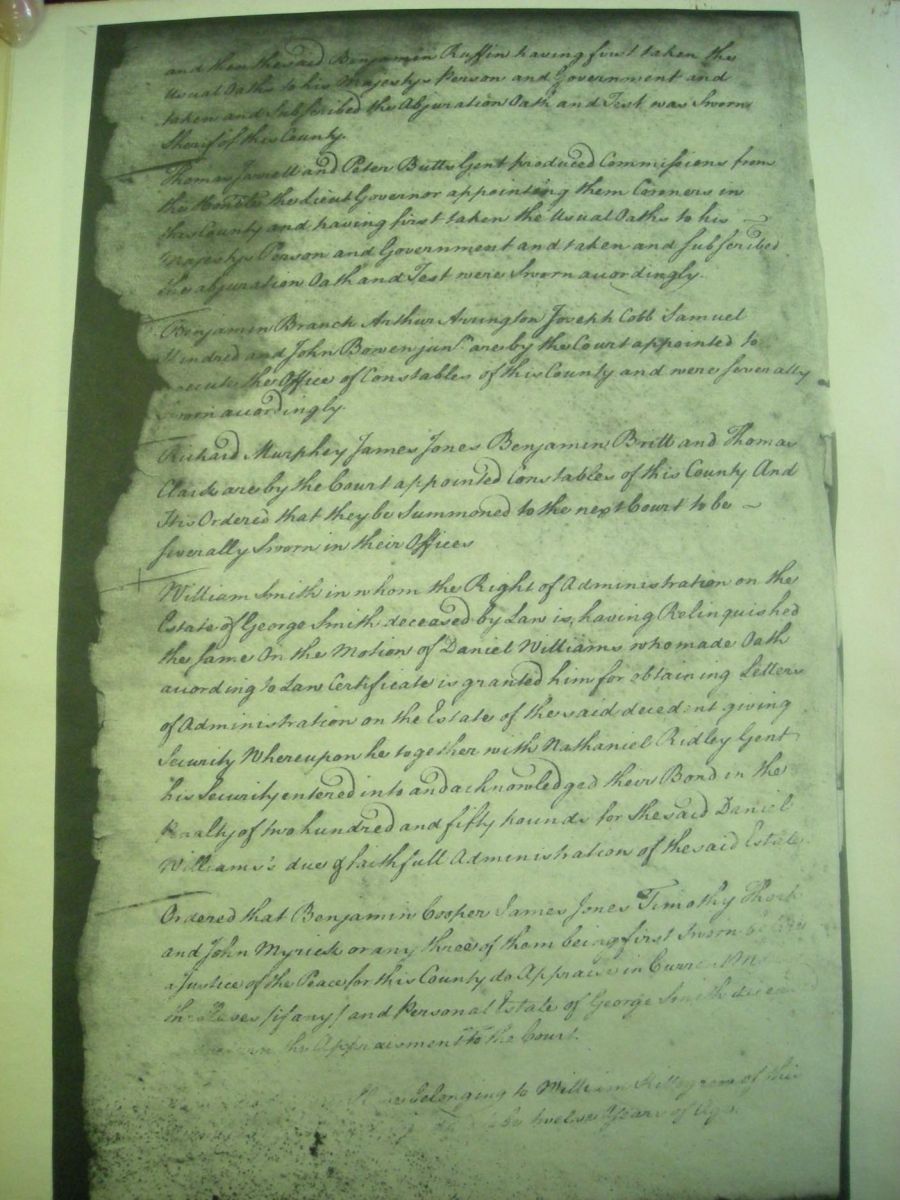 and then the said Benjamin Ruffin having first taken the
Usual Oaths to his Majestys Person and Government and
taken and Subscribed the Abjuration Oath and Test was Sworn
Sherif of this County.
Thomas Jarrell and Peter Butts Gent produced Commissions from
the Honble the Lieut Governor appointing them Coroners in
this County and having first taken the Usual Oaths to his
Majestys Person and Government and taken and Subscribed
the abjuration Oath and Test were Sworn accordingly.
Benjamin Branch Arthur Arrington Joseph Cobb Samuel
Kindred and John Bowen junr. are by the Court appointed to
execute the Office of Constables of this County and were severally
sworn accordingly.
Richard Murphey James Jones Benjamin Britt and Thomas
Clark are by the Court appointed Constables of this County And
It is Ordered that they be Summoned to the next Court to be
severally Sworn in their Offices
William Smith in whom the Right of Administration on the
Estate of George Smith deceased by Law is, having Relinquished
the same On the Motion of Daniel Williams who made Oath
according to Law Certificate is granted him for obtaining Letters
of Administration on the Estate of the said decedent giving
Security Whereupon he together with Nathaniel Ridley Gent
his Security entered into and acknowledged their Bond in the
Penalty of two hundred and fifty pounds for the said Daniel
Williams's due & faithfull Administration of the said Estate.
Ordered that Benjamin Cooper James Jones Timothy Thorp
and John Myrick or any three of them being first Sworn before
a Justice of the Peace for this County do Appraise in Current
the Slaves (if any) and Personal Estate of George Smith deceased
the Appraisment to the Court.
Slave Belonging to William Killegrew of this
be twelve Years of Age.